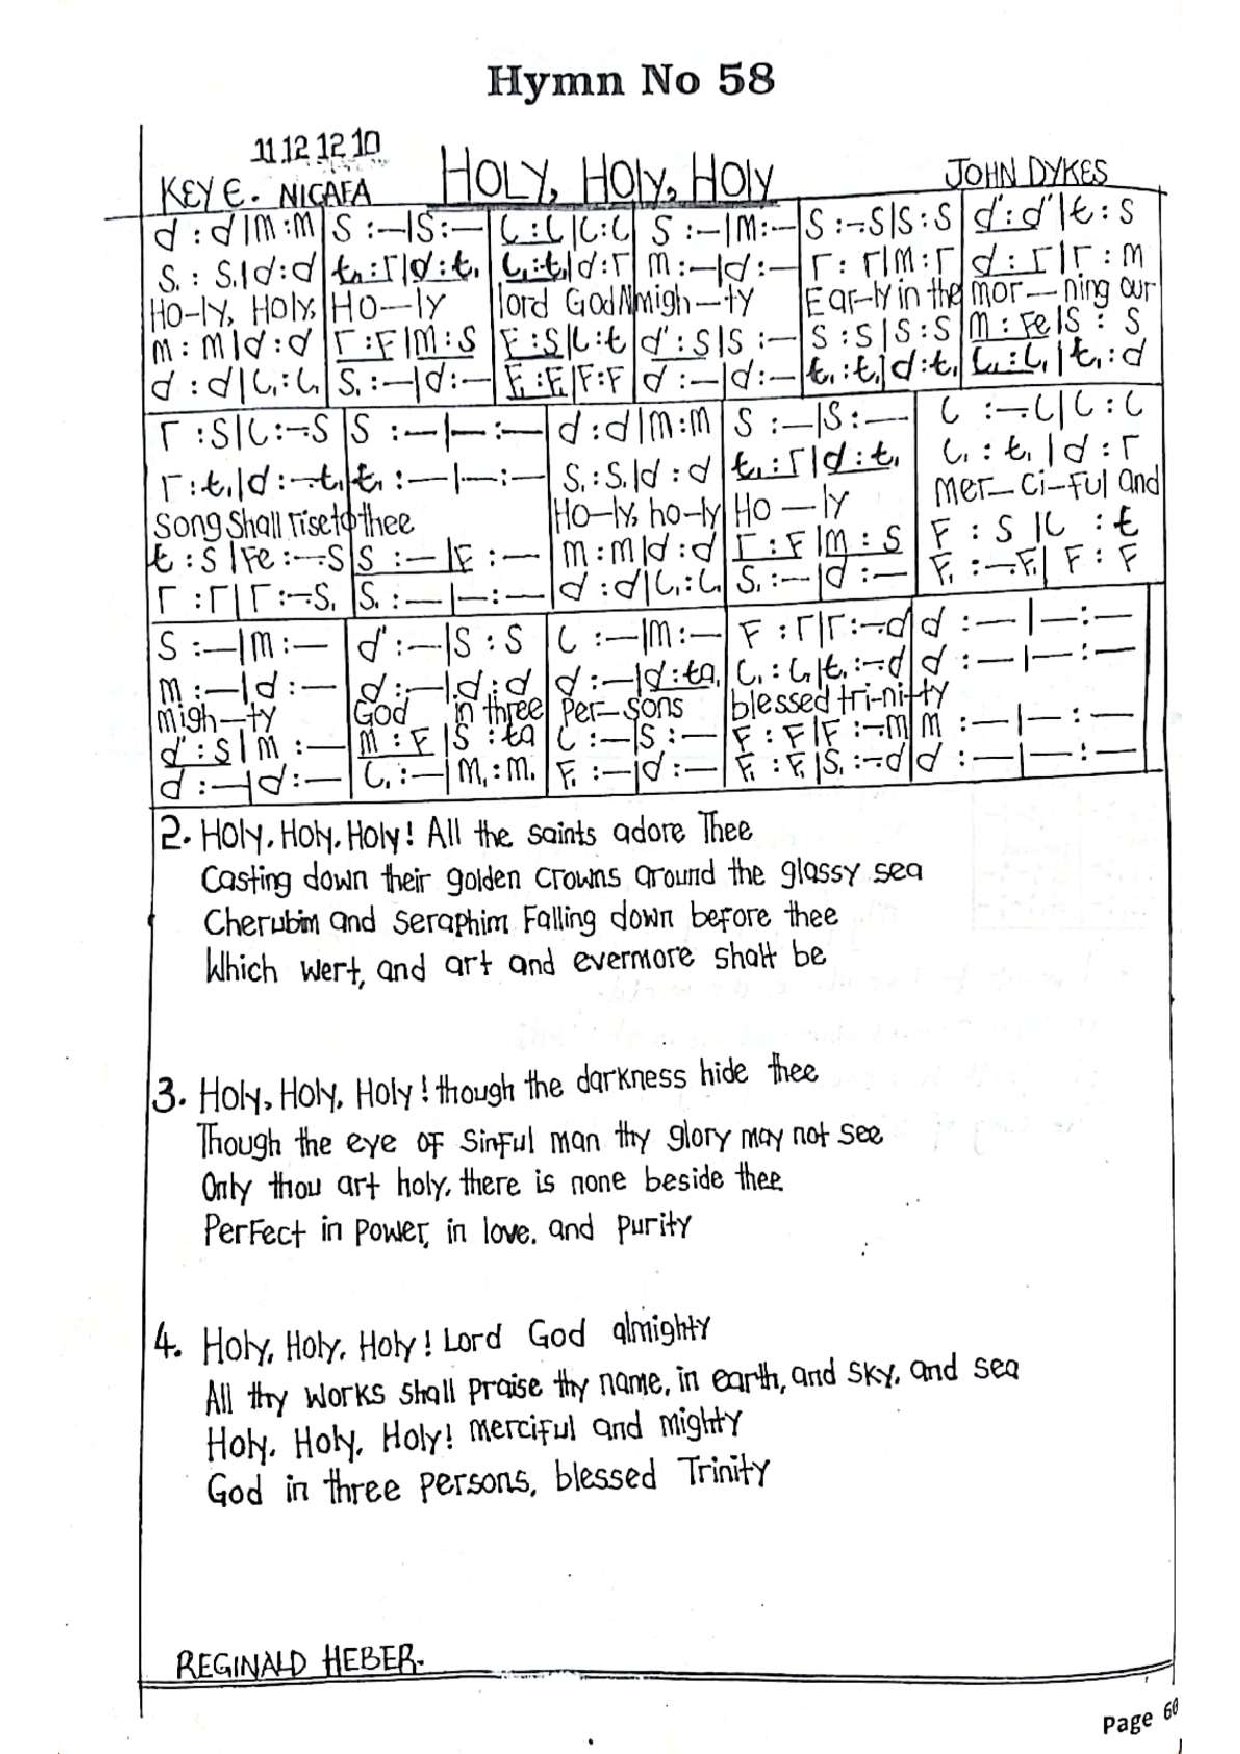 Hymn No 58
11 12 12 10
KEY E. NICAEA HOLY, HOly, HOly JOHN DYKES
d : d|m : m|S : —|S : —|L : L|L : L|S : —|m : —|S : —. S|S : S|d' : d'|t : S
S, : S,|d : d|t, : r|d : t,|L, : t,|d : r|m : —|d : —|r : r|m : r|d : r|r : m
Ho-ly, Holy, Ho—ly lord God Almigh—ty Ear-ly in the mor—ning our
m : m|d : d|r : F|m : S|F : S|L : t|d' : S|S : —|S : S|S : S|m : Fe|S : S
d : d|L, : L,|S, : —|d : —|F, : F,|F : F|d : —|d : —|t, : t,|d : t,|L, : L,|t, : d
r : S|L : —. S|S : —|— : —|d : d|m : m|S : —|S : —|L : —. L|L : L
r : t,|d : —. t,|t, : —|— : —|S, : S,|d : d|t, : r|d : t,|L, : t,|d : r
Song Shall rise to thee Ho-ly, ho-ly Ho—ly mer—ci-ful and
t : S|Fe : —. S|S : —|F : —|m : m|d : d|r : F|m : S|F : S|L : t
r : r|r : —. S,|S, : —|— : —|d : d|L, : L,|S, : —|d : —|F, : —. F,|F : F
S : —|m : —|d' : —|S : S|L : —|m : —|F : r|r : —. d|d : —|— : —
m : —|d : —|d : —|d : d|d : —|d : ta,|L, : L,|t, : —. d|d : —|— : —
migh—ty God in three Per—sons blessed tri-ni-ty
d' : S|m : —|m : F|S : ta|L : —|S : —|F : F|F : —. m|m : —|— : —
d : —|d : —|L, : —|m, : m,|F, : —|d : —|F, : F,|S, : —. d|d : —|— : —
2. HOly, HOly, HOly! All the saints adore Thee
Casting down their golden crowns around the glassy sea
Cherubim and seraphim Falling down before thee
Which wert, and art and evermore shalt be
3. Holy, Holy, Holy! though the darkness hide thee
Though the eye of sinful man thy glory may not see
Only thou art holy, there is none beside thee
Perfect in power, in love, and purity
4. Holy, Holy, Holy! Lord God almighty
All thy works shall praise thy name, in earth, and sky, and sea
Holy, Holy, Holy! merciful and mighty
God in three persons, blessed Trinity
REGINALD HEBER.
Page 60